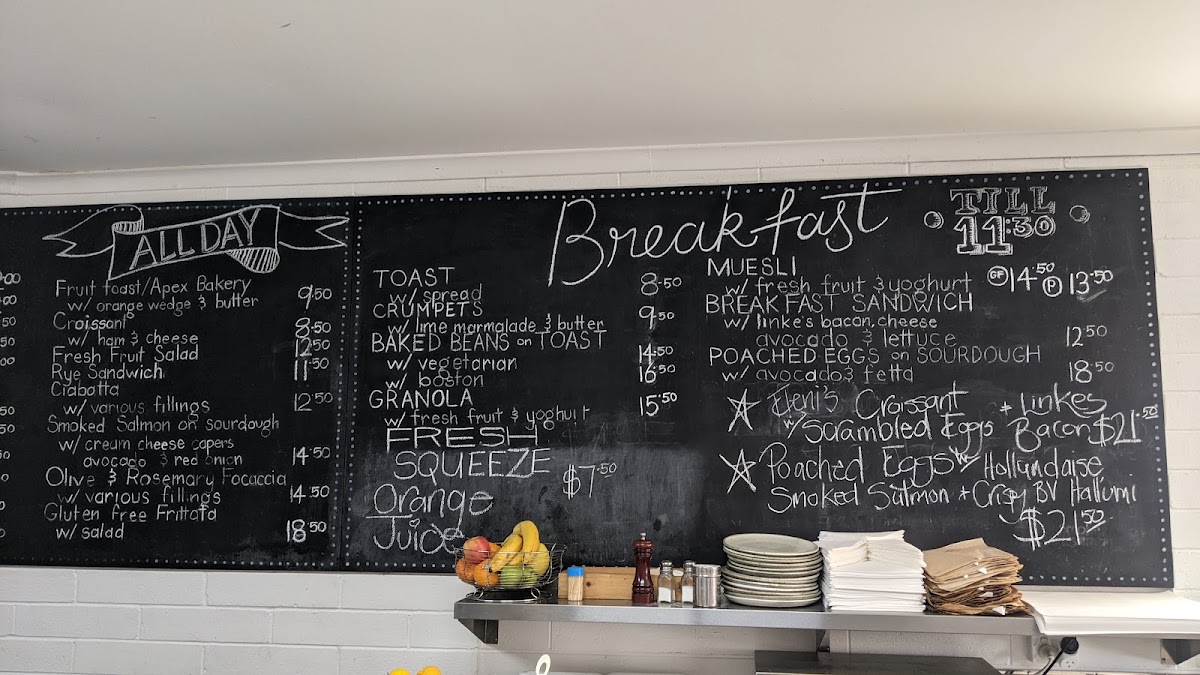 ALL DAY
Fruit toast/Apex Bakery
w/ orange wedge & butter 9.50
Croissant 8.50
w/ ham & cheese 12.50
Fresh Fruit Salad
Rye Sandwich 11.50
Ciabatta
w/ various fillings 12.50
Smoked Salmon on sourdough
w/ cream cheese capers
avocado & red onion 14.50
Olive & Rosemary Focaccia
w/ various fillings 14.50
Gluten free Frittata
w/ salad 18.50
Breakfast
TILL
11:30
TOAST
w/ spread 8.50
CRUMPETS
w/ lime marmalade & butter 9.50
BAKED BEANS on TOAST
w/ vegetarian 14.50
w/ boston 16.50
GRANOLA
w/ fresh fruit & yoghurt 15.50
FRESH
SQUEEZE $7.50
Orange
Juice
MUESLI
w/ fresh fruit & yoghurt GF 14.50 P 13.50
BREAKFAST SANDWICH
w/ linke's bacon, cheese
avocado & lettuce 12.50
POACHED EGGS on SOURDOUGH
w/ avocado & fetta 18.50
Eleni's Croissant + Linkes
w/ Scrambled Eggs Bacon $21.50
Poached Eggs w/ Hollandaise
Smoked Salmon + Crispy BV Hallumi
$21.50